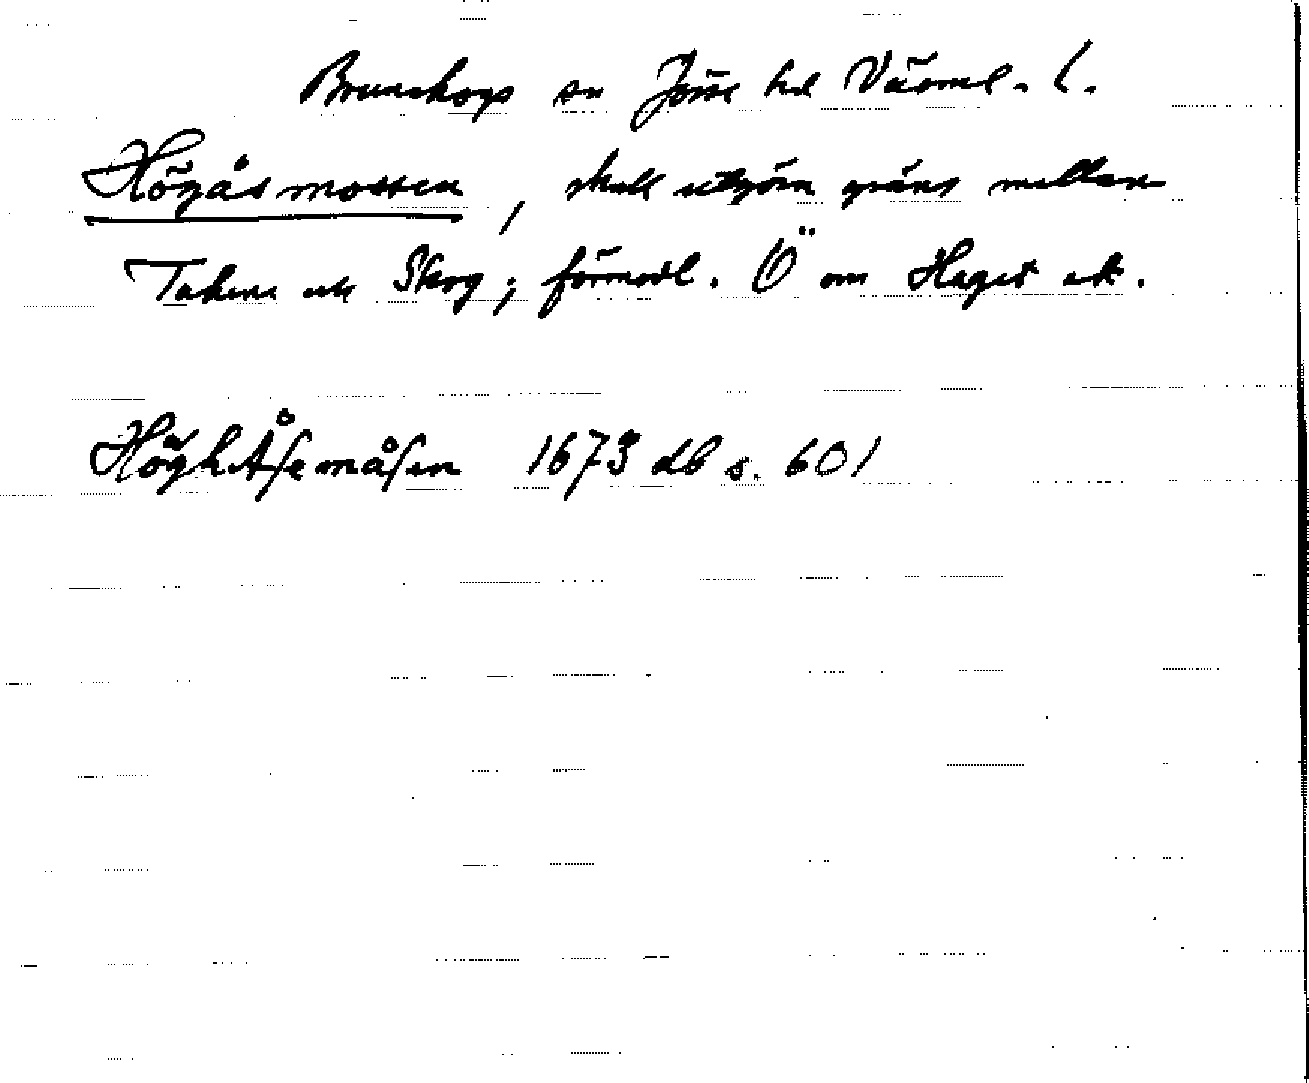 Brunskogs sn Jösse hd Värml. l.
Högåsmossen, skall utgöra gräns mellan
Takene och Skog; förmodl. Ö om Haget ek.
HöghÅſemåſen 1673 db s. 601